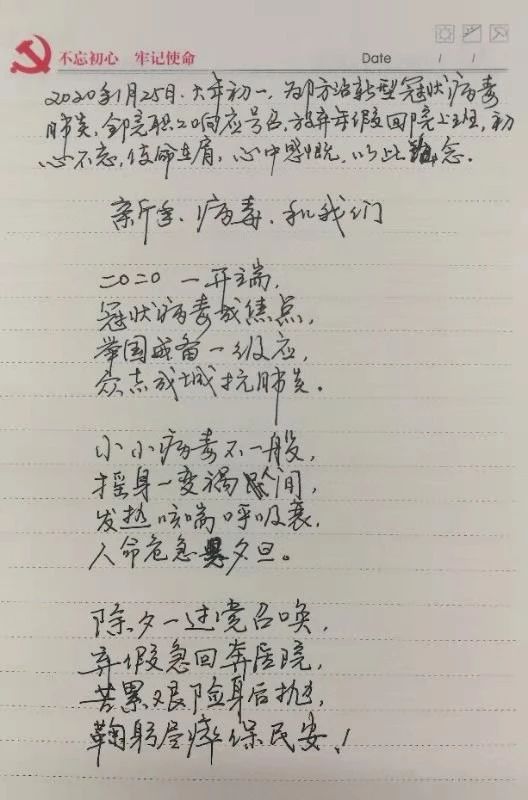 不忘初心 牢记使命
Date / /
2020年1月25日.大年初一,为防治新型冠状病毒
肺炎,全院职工响应号召,放弃年假回院上班,初
心不忘,使命在肩,心中感慨,以此纪念.
新年、病毒、和我们
二〇二〇一开端,
冠状病毒成焦点,
举国戒备一级应,
众志成城抗肺炎.
小小病毒不一般,
摇身一变祸人间,
发热咳喘呼吸衰,
人命危急夕旦。
除夕一过党召唤,
弃假急回奔医院,
苦累艰险身后抛,
鞠躬尽瘁保民安!